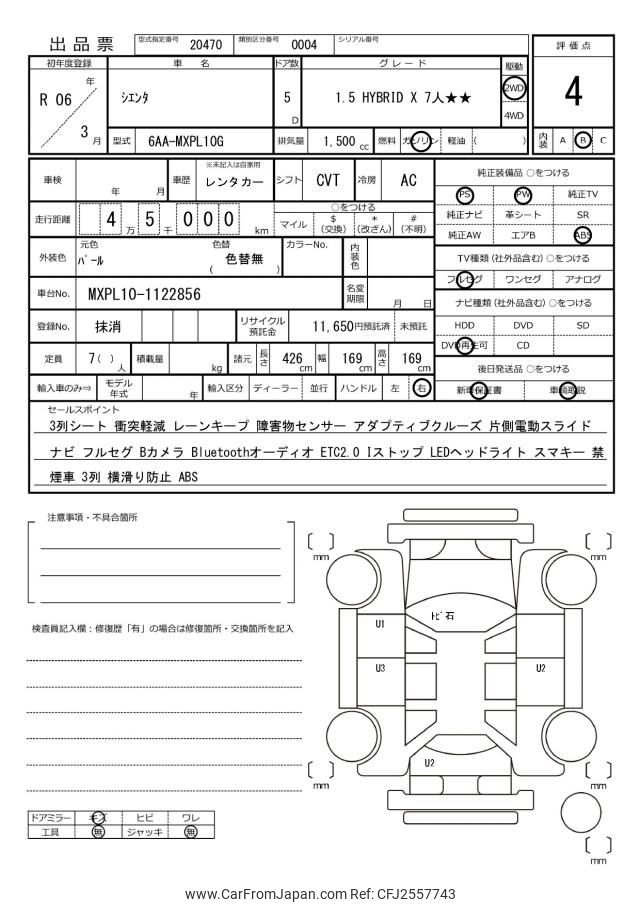 出品票 型式指定番号 20470 類別区分番号 0004 シリアル番号
初年度登録 車 名 ドア数 グレード 駆動 評価点
R 06 年 3 月 シエンタ 5 D 1.5 HYBRID X 7人★★ 2WD 4WD 4
型式 6AA-MXPL10G 排気量 1,500 cc 燃料 ガソリン 軽油 ( ) 内装 A B C
車検 年 月 車歴 ※未記入は自家用 レンタカー シフト CVT 冷房 AC
純正装備品 ○をつける
PS PW 純正TV
純正ナビ 革シート SR
純正AW エアB ABS
走行距離 4 万 5 千 0 0 0 km
○をつける
マイル $ (交換) * (改ざん) # (不明)
外装色 元色 パール 色替 色替無 ( ) カラーNo. 内装色
TV種類 (社外品含む) ○をつける
フルセグ ワンセグ アナログ
車台No. MXPL10-1122856 名変期限 月 日
ナビ種類 (社外品含む) ○をつける
HDD DVD SD
DVD再生可 CD
登録No. 抹消 リサイクル預託金 11,650円預託済 未預託
定員 7( ) 人 積載量 kg 諸元 長さ 426 cm 幅 169 cm 高さ 169 cm
後日発送品 ○をつける
新車保証書 車輌取説
輸入車のみ⇒ モデル年式 年 輸入区分 ディーラー 並行 ハンドル 左 右
セールスポイント
3列シート 衝突軽減 レーンキープ 障害物センサー アダプティブクルーズ 片側電動スライド
ナビ フルセグ Bカメラ Bluetoothオーディオ ETC2.0 Iストップ LEDヘッドライト スマキー 禁
煙車 3列 横滑り防止 ABS
注意事項・不具合箇所
検査員記入欄:修復歴「有」の場合は修復箇所・交換箇所を記入
mm
mm
トビ石
U1
U3
U2
U2
mm
mm
mm
ドアミラー キズ ヒビ ワレ
工具 無 ジャッキ 無
www.CarFromJapan.com Ref: CFJ2557743